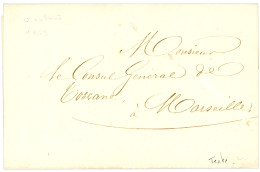 Monsieur
le Consul Général de
Toscane
à Marseille